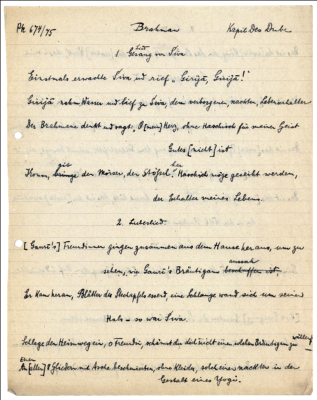 Ph 678/75 Brahman Kapil Deo Dube
1. Gesang von Siva
Einstmals erwachte Siva und rief „Girijā, Girijā!"
Girijā nahm Wasser und lief zu Siva, dem verborgenen, nackten, Lebenerhalter
Der Brahmane denkt und sagt, O [mein] Herz, ohne Haschisch für meinen Geist
Gutes [nicht] ist
Komm, bringe den Mörser, den Stößel! Haschisch möge gerieben werden,
der Erhalter meines Lebens.
2. Liebeslied
[Gaurī's] Freundinnen gingen zusammen aus dem Hause heraus, um zu
sehen, wie Gaurī's Bräutigam beschaffen ist,
aussah
Er kam heran, Blätter des Stechapfels essend, eine Schlange wand sich um seinen
Hals – so war Siva
Schlage den Heimweg ein, o Freundin, schämst du dich nicht eines solchen Bräutigams
willen
An [allen] 8 Gliedern mit Asche beschmiert, ohne Kleider, solch einen nackten in der
Gestalt eines Yogi.